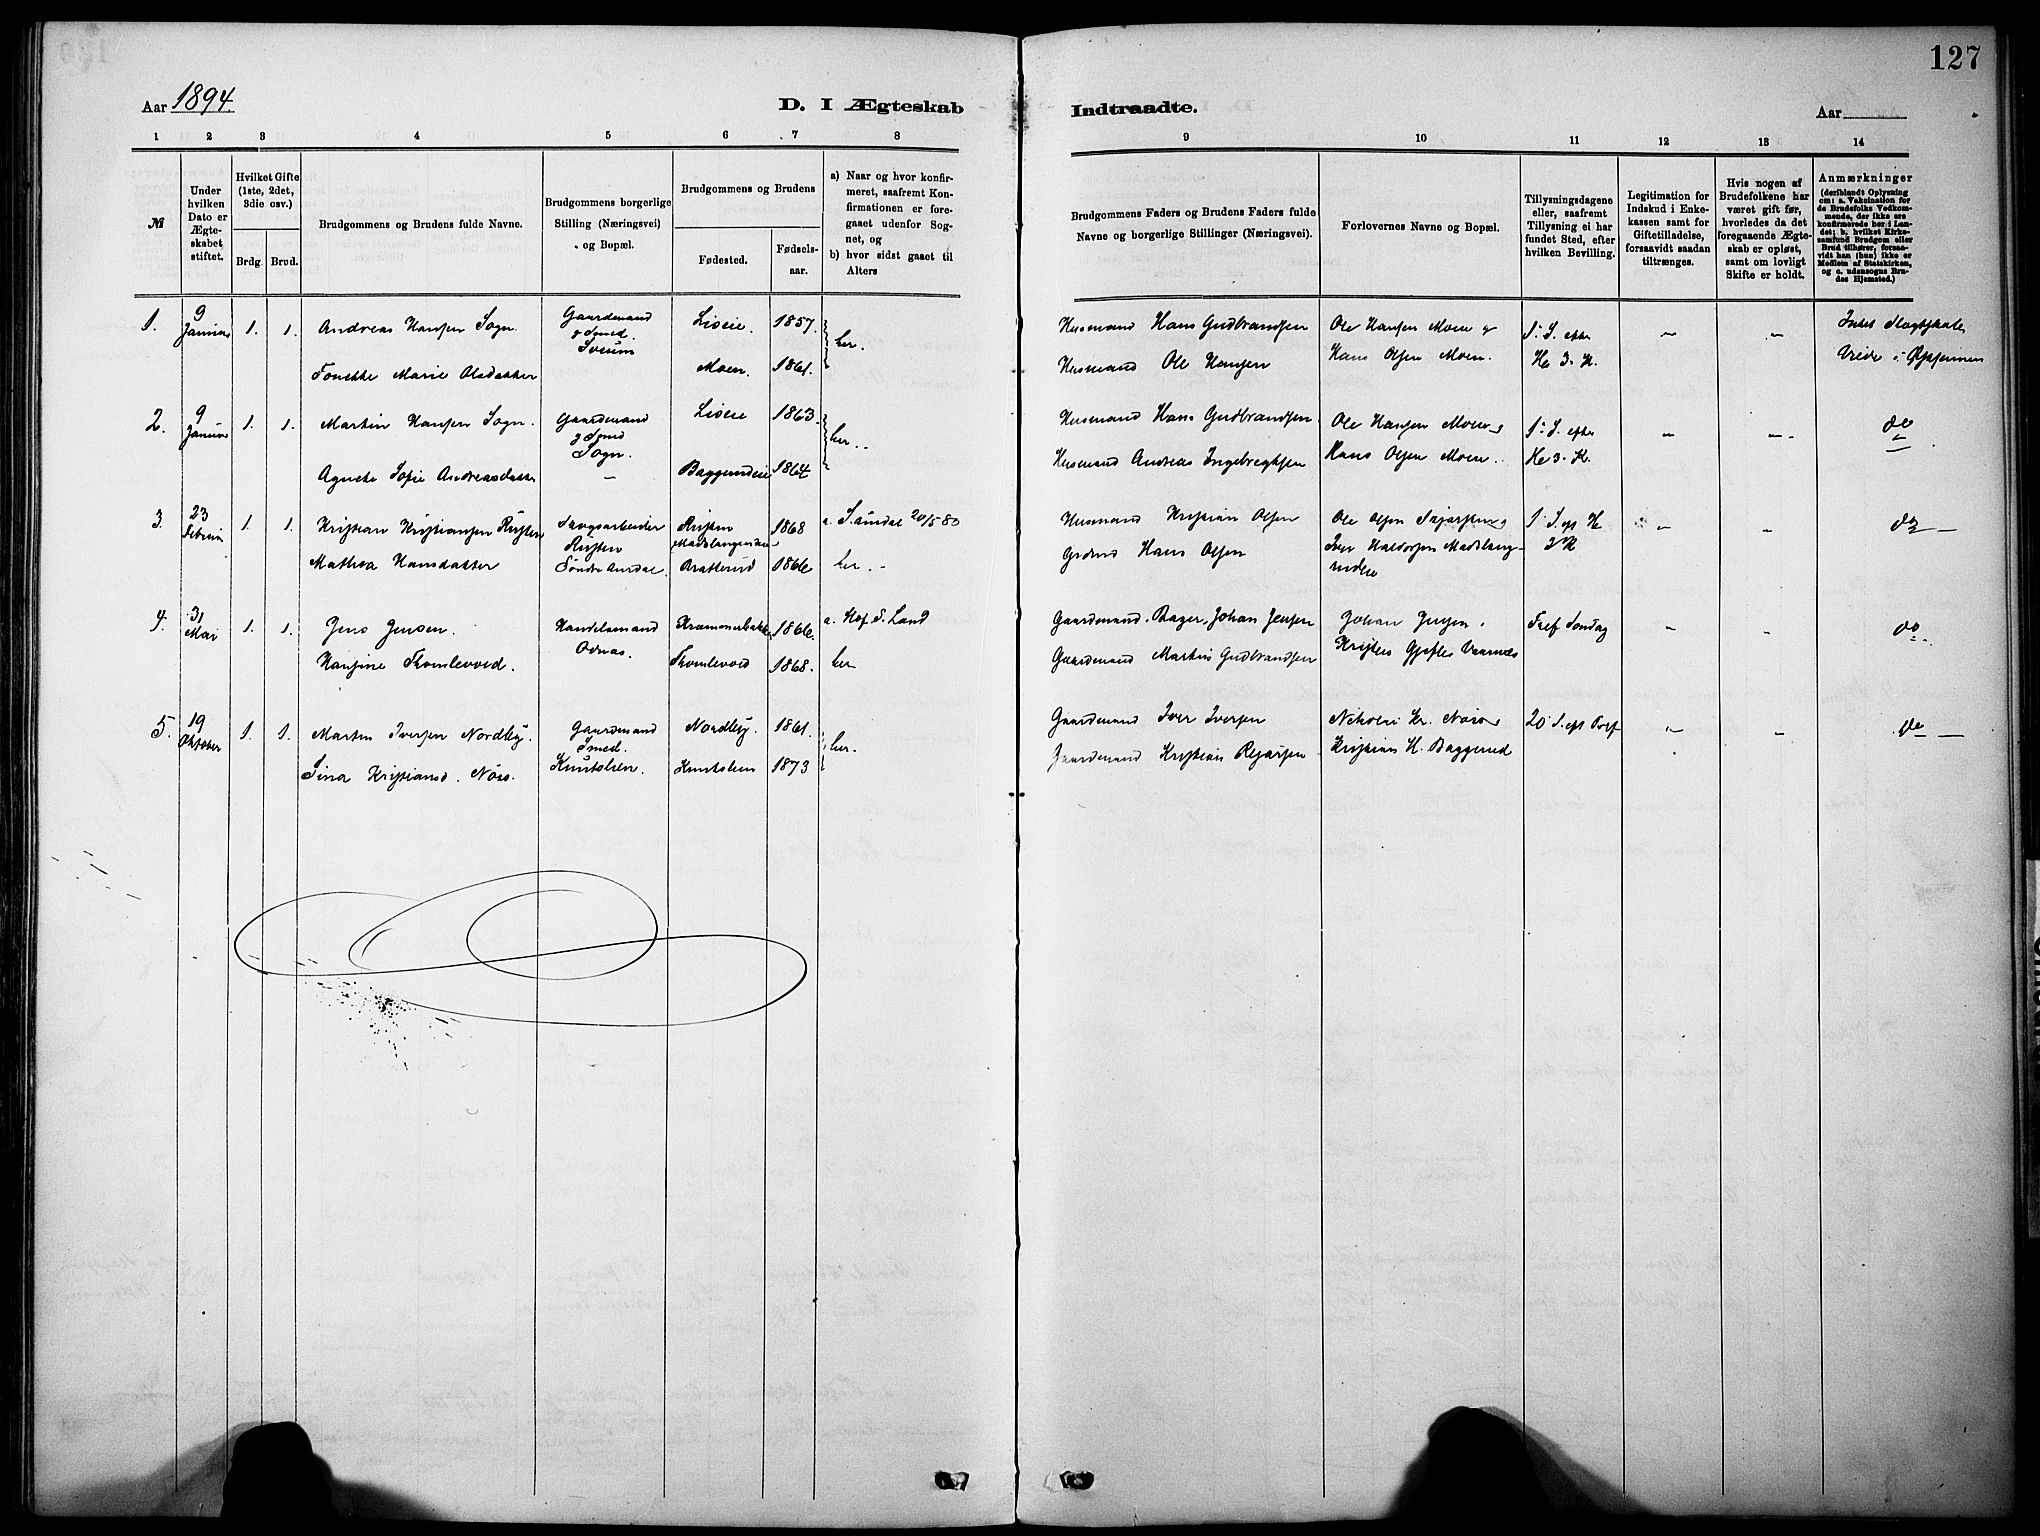 127
Aar 1894
D. I Ægteskab
Indtraadte.
Aar
1 2 3 4 5 6 7 8
9 10 11 12 13 14
№
Under hvilken Dato er Ægteskabet stiftet.
Hvilket Gifte (1ste, 2det, 3die osv.)
Brdg. Brud.
Brudgommens og Brudens fulde Navne.
Brudgommens borgerlige Stilling (Næringsvei) og Bopæl.
Brudgommens og Brudens
Fødested.
Fødselsaar.
a) Naar og hvor konfirmeret, saafremt Konfirmationen er foregaaet udenfor Sognet, og
b) hvor sidst gaaet til Alters
Brudgommens Faders og Brudens Faders fulde Navne og borgerlige Stillinger (Næringsvei).
Forlovernes Navne og Bopæl.
Tillysningsdagene eller, saafremt Tillysning ei har fundet Sted, efter hvilken Bevilling.
Legitimation for Indskud i Enkekassen samt for Giftetilladelse, forsaavidt saadan tiltrænges.
Hvis nogen af Brudefolkene har været gift før, hvorledes da det foregaaende Ægteskab er opløst, samt om lovligt Skifte er holdt.
Anmærkninger (deriblandt Oplysning om: a. Vakcination for de Brudefolks Vedkommende, der ikke ere konfirmerede her i Landet; b. hvilket Kirkesamfund Brudgom eller Brud tilhører, forsaavidt han (hun) ikke er Medlem af Statskirken, og c. udensogns Brudes Hjemsted.)
1. 9 Januar 1. 1. Andreas Hansen Sogn. Gaardmand & Smed. Sveum Liseie. 1857. her. Husmand Hans Gudbrandsen Ole Hansen Moen & 1ste S. efter Intet Slægtskab
Marie Olsdatter Moen. 1861. Husmand Ole Hansen Hans Olsen Moen. He 3. K.
2. 9 Januar 1. 1. Martin Hansen Sogn. Gaardmand & Smed Sogn. Liseie 1863. her. Husmand Hans Gudbrandsen Ole Hansen Moen & 1ste S. efter do
Agnethe Sofie Andreasdatter Baggerudeie 1864 Husmand Andreas Ingebregtsen Hans Olsen Moen. He 3. K.
3. 23 Februar 1. 1. Kristian Kristiansen a. S. 20/5 80 1868 Husmand Kristian Olsen Ole Olsen do
Mathea Hansdatter Bratterud 1866 her. Hans Olsen
4. 31 Mai 1. 1. Jens Jensen. Handelsmand Odnæs. 1866. a. Hof S. Land Gaardmand. Bager Johan Jensen Johan Jensen. Tref Søndag do
Hansine Thomlevold. Thomlevold 1868. her Gaardmand Martin Gudbrandsen
5. 19 Oktober 1. 1. Martin Iversen Nordby. Gaardmand Smed. Nordby. 1861. her. Gaardmand Iver Iversen 20 S. eft Tref do
Sina Kristiansd. Næss. 1873 Gaardmand Kristian Kristian H. Baggerud